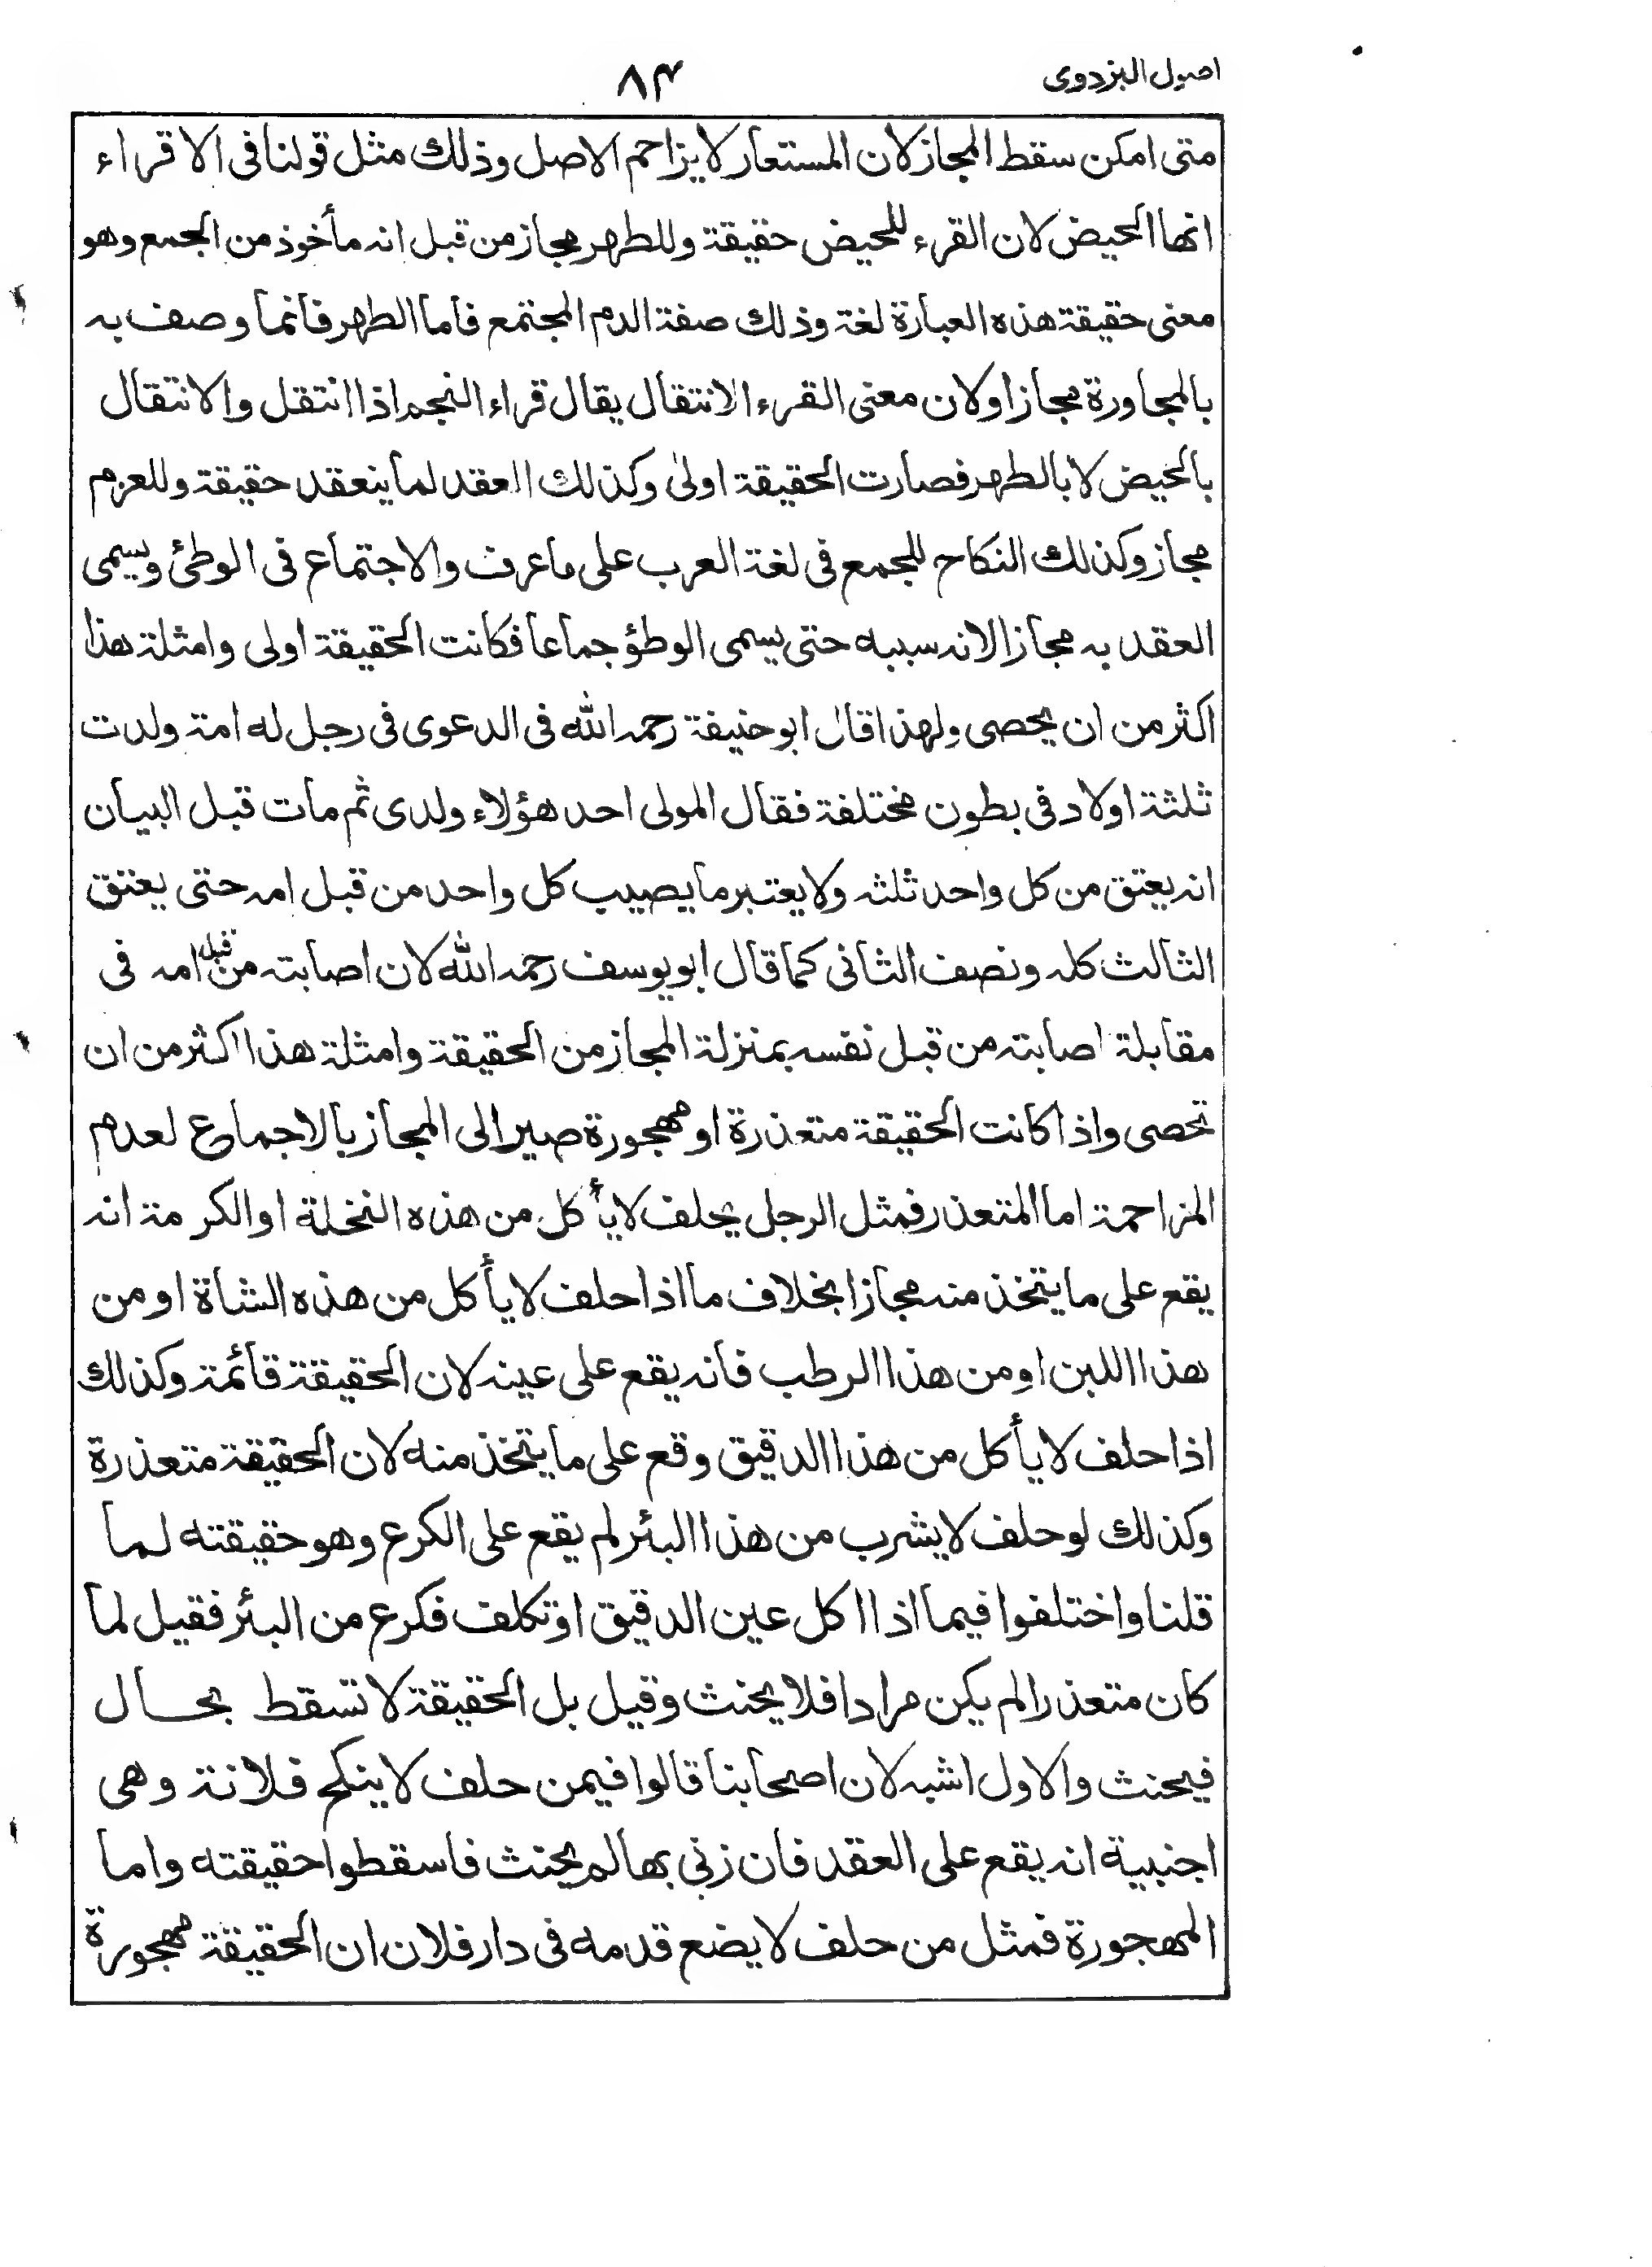 اصول البزدوی
۸۴
متى امكن سقط المجاز لان المستعار لا يزاحم الاصل وذلك مثل قولنا فى الاقراء
انها الحيض لان القرء للحيض حقيقة وللطهر مجاز من قبل انه مأخوذ من الجمع وهو
معنى حقيقة هذه العبارة لغة وذلك صفة الدم المجتمع فاما الطهر فانما وصف به
بالمجاورة مجازا ولان معنى القرء الانتقال يقال قراء النجم اذا انتقل والانتقال
بالحيض لا بالطهر فصارت الحقيقة اولى وكذلك العقد لما ينعقد حقيقة وللعزم
مجاز وكذلك النكاح للجمع فى لغة العرب على ما عرف والاجتماع فى الوطئ ويسمى
العقد به مجازا لانه سببه حتى يسمى الوطؤ جماعا فكانت الحقيقة اولى وامثلة هذا
اكثر من ان يحصى ولهذا قال ابو حنيفة رحمه الله فى الدعوى فى رجل له امة ولدت
ثلثة اولاد فى بطون مختلفة فقال المولى احد هؤلاء ولدى ثم مات قبل البيان
انه يعتق من كل واحد ثلثه ولا يعتبر ما يصيب كل واحد من قبل امه حتى يعتق
الثالث كله ونصف الثانى كما قال ابو يوسف رحمه الله لان اصابته من قبل امه فى
مقابلة اصابته من قبل نفسه بمنزلة المجاز من الحقيقة وامثلة هذا اكثر من ان
تحصى واذا كانت الحقيقة متعذرة او مهجورة صير الى المجاز بالاجماع لعدم
المزاحمة اما المتعذر فمثل الرجل يحلف لا يأكل من هذه النخلة او الكرمة انه
يقع على ما يتخذ منه مجازا بخلاف ما اذا حلف لا يأكل من هذه الشاة او من
هذا اللبن او من هذا الرطب فانه يقع على عينه لان الحقيقة قائمة وكذلك
اذا حلف لا يأكل من هذا الدقيق وقع على ما يتخذ منه لان الحقيقة متعذرة
وكذلك لو حلف لا يشرب من هذا البئر لم يقع على الكرع وهو حقيقته لما
قلنا واختلفوا فيما اذا اكل عين الدقيق او تكلف فكرع من البئر فقيل لما
كان متعذرا لم يكن مرادا فلا يحنث وقيل بل الحقيقة لا تسقط بحال
فيحنث والاول اشبه لان اصحابنا قالوا فيمن حلف لا ينكح فلانة وهى
اجنبية انه يقع على العقد فان زنى بها لم يحنث فاسقطوا حقيقته واما
المهجورة فمثل من حلف لا يضع قدمه فى دار فلان ان الحقيقة مهجورة